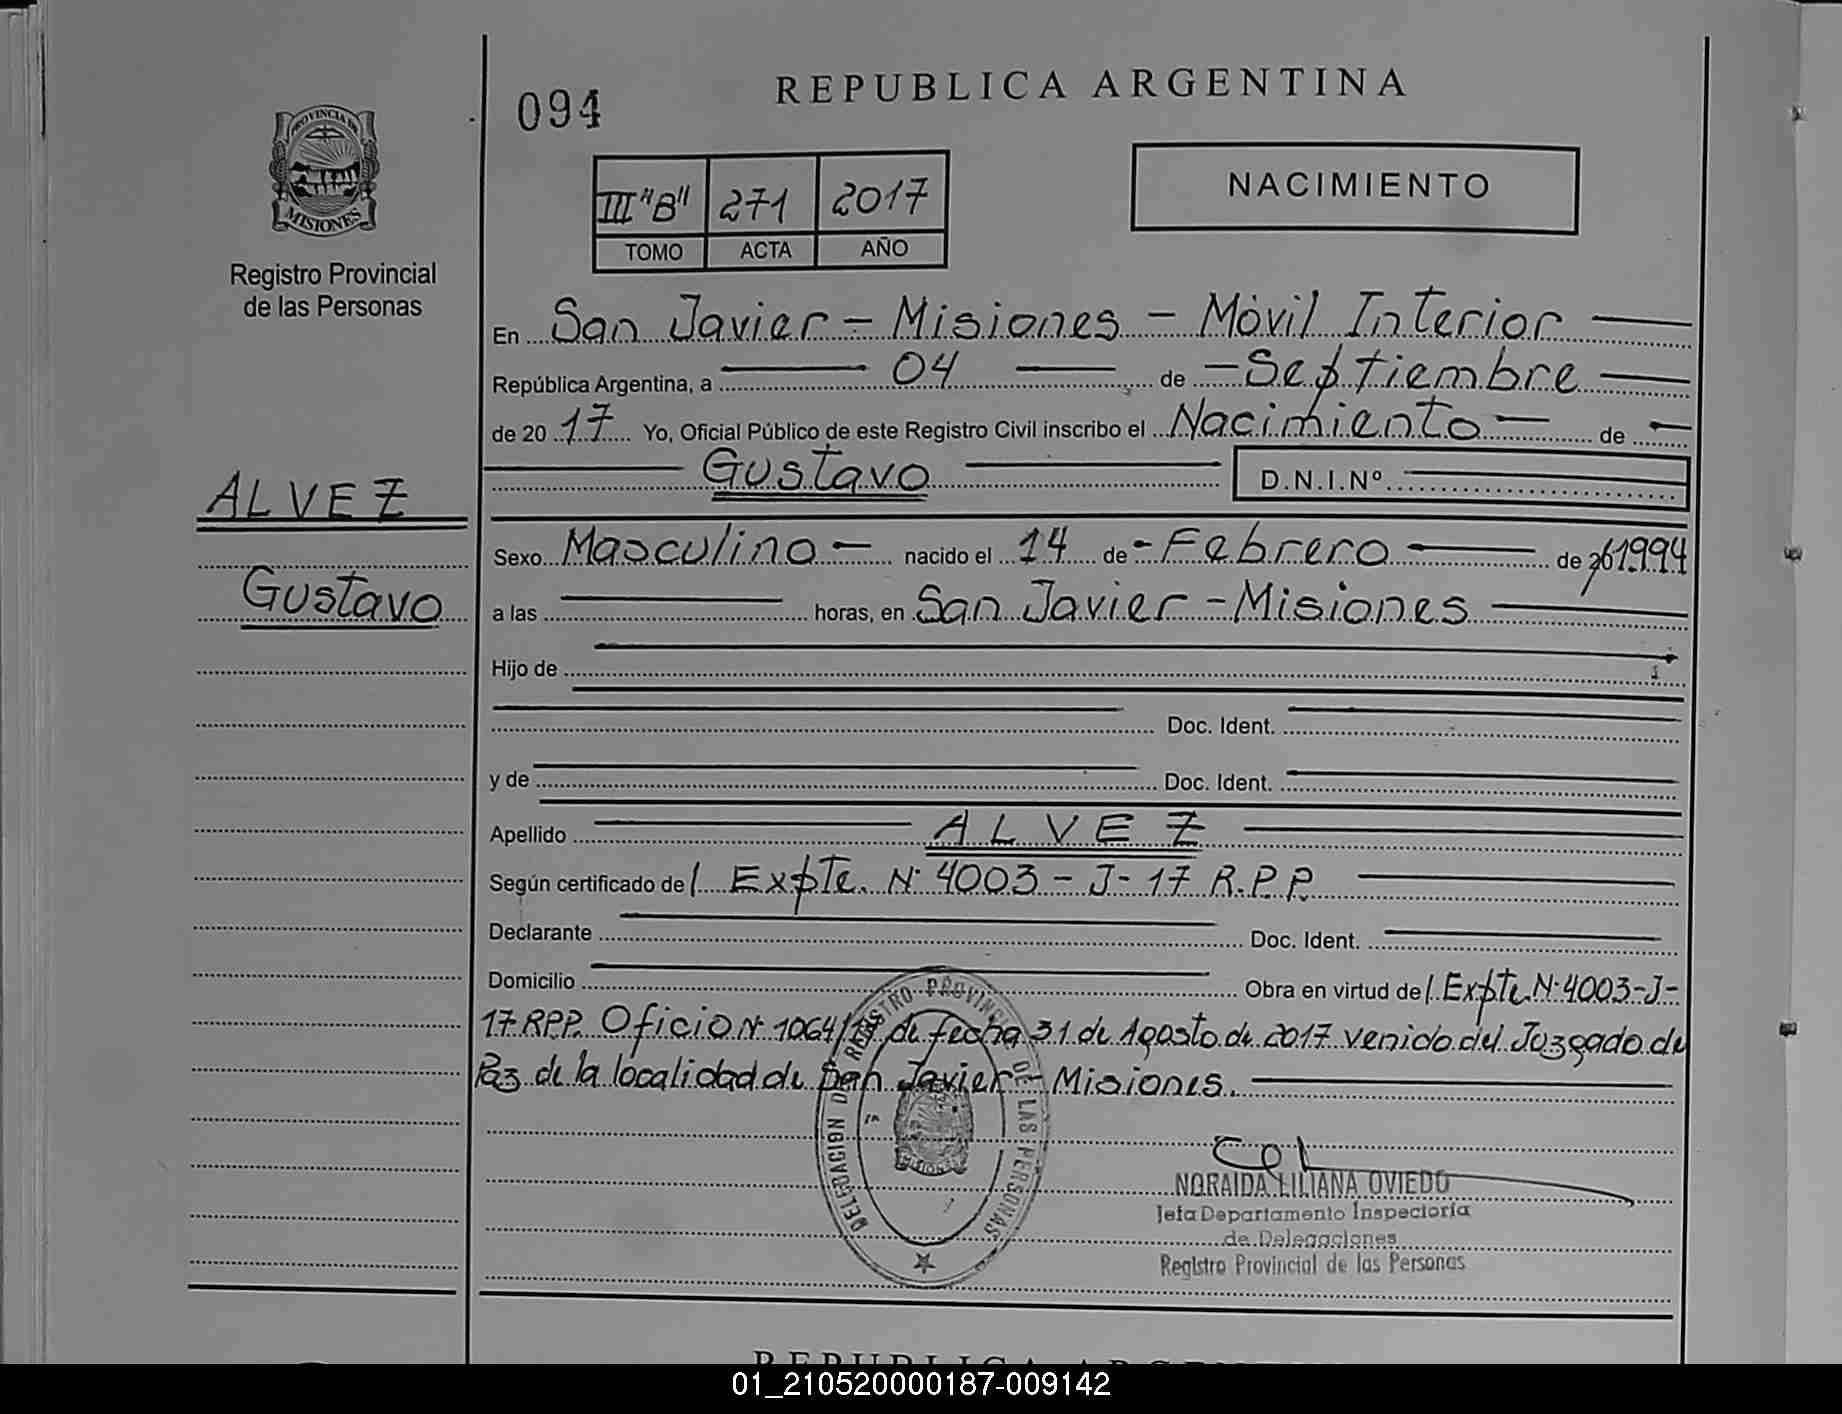 094
REPUBLICA ARGENTINA
PROVINCIA DE
MISIONES
Registro Provincial
de las Personas
III "B" 271 2017
TOMO ACTA AÑO
NACIMIENTO
En San Javier - Misiones - Móvil Interior
República Argentina, a 04 de Septiembre
de 2017 Yo, Oficial Público de este Registro Civil inscribo el Nacimiento de
Gustavo D.N.I.Nº
ALVEZ
Gustavo
Sexo Masculino nacido el 14 de Febrero de 20 1994
a las horas, en San Javier - Misiones
Hijo de
Doc. Ident.
y de Doc. Ident.
Apellido ALVEZ
Según certificado de/ Expte. Nº 4003 - J - 17 R.P.P.
Declarante Doc. Ident.
Domicilio Obra en virtud de/ Expte. Nº 4003-J-
17 R.P.P. Oficio Nº 1064/17 de fecha 31 de Agosto de 2017 venido del Juzgado de
Paz de la localidad de San Javier - Misiones.
DELEGACION DE REGISTRO PROVINCIAL DE LAS PERSONAS
MISIONES
NORAIDA LILIANA OVIEDO
Jefa Departamento Inspectoría
de Delegaciones
Registro Provincial de las Personas
REPUBLICA ARGENTINA
01_210520000187-009142